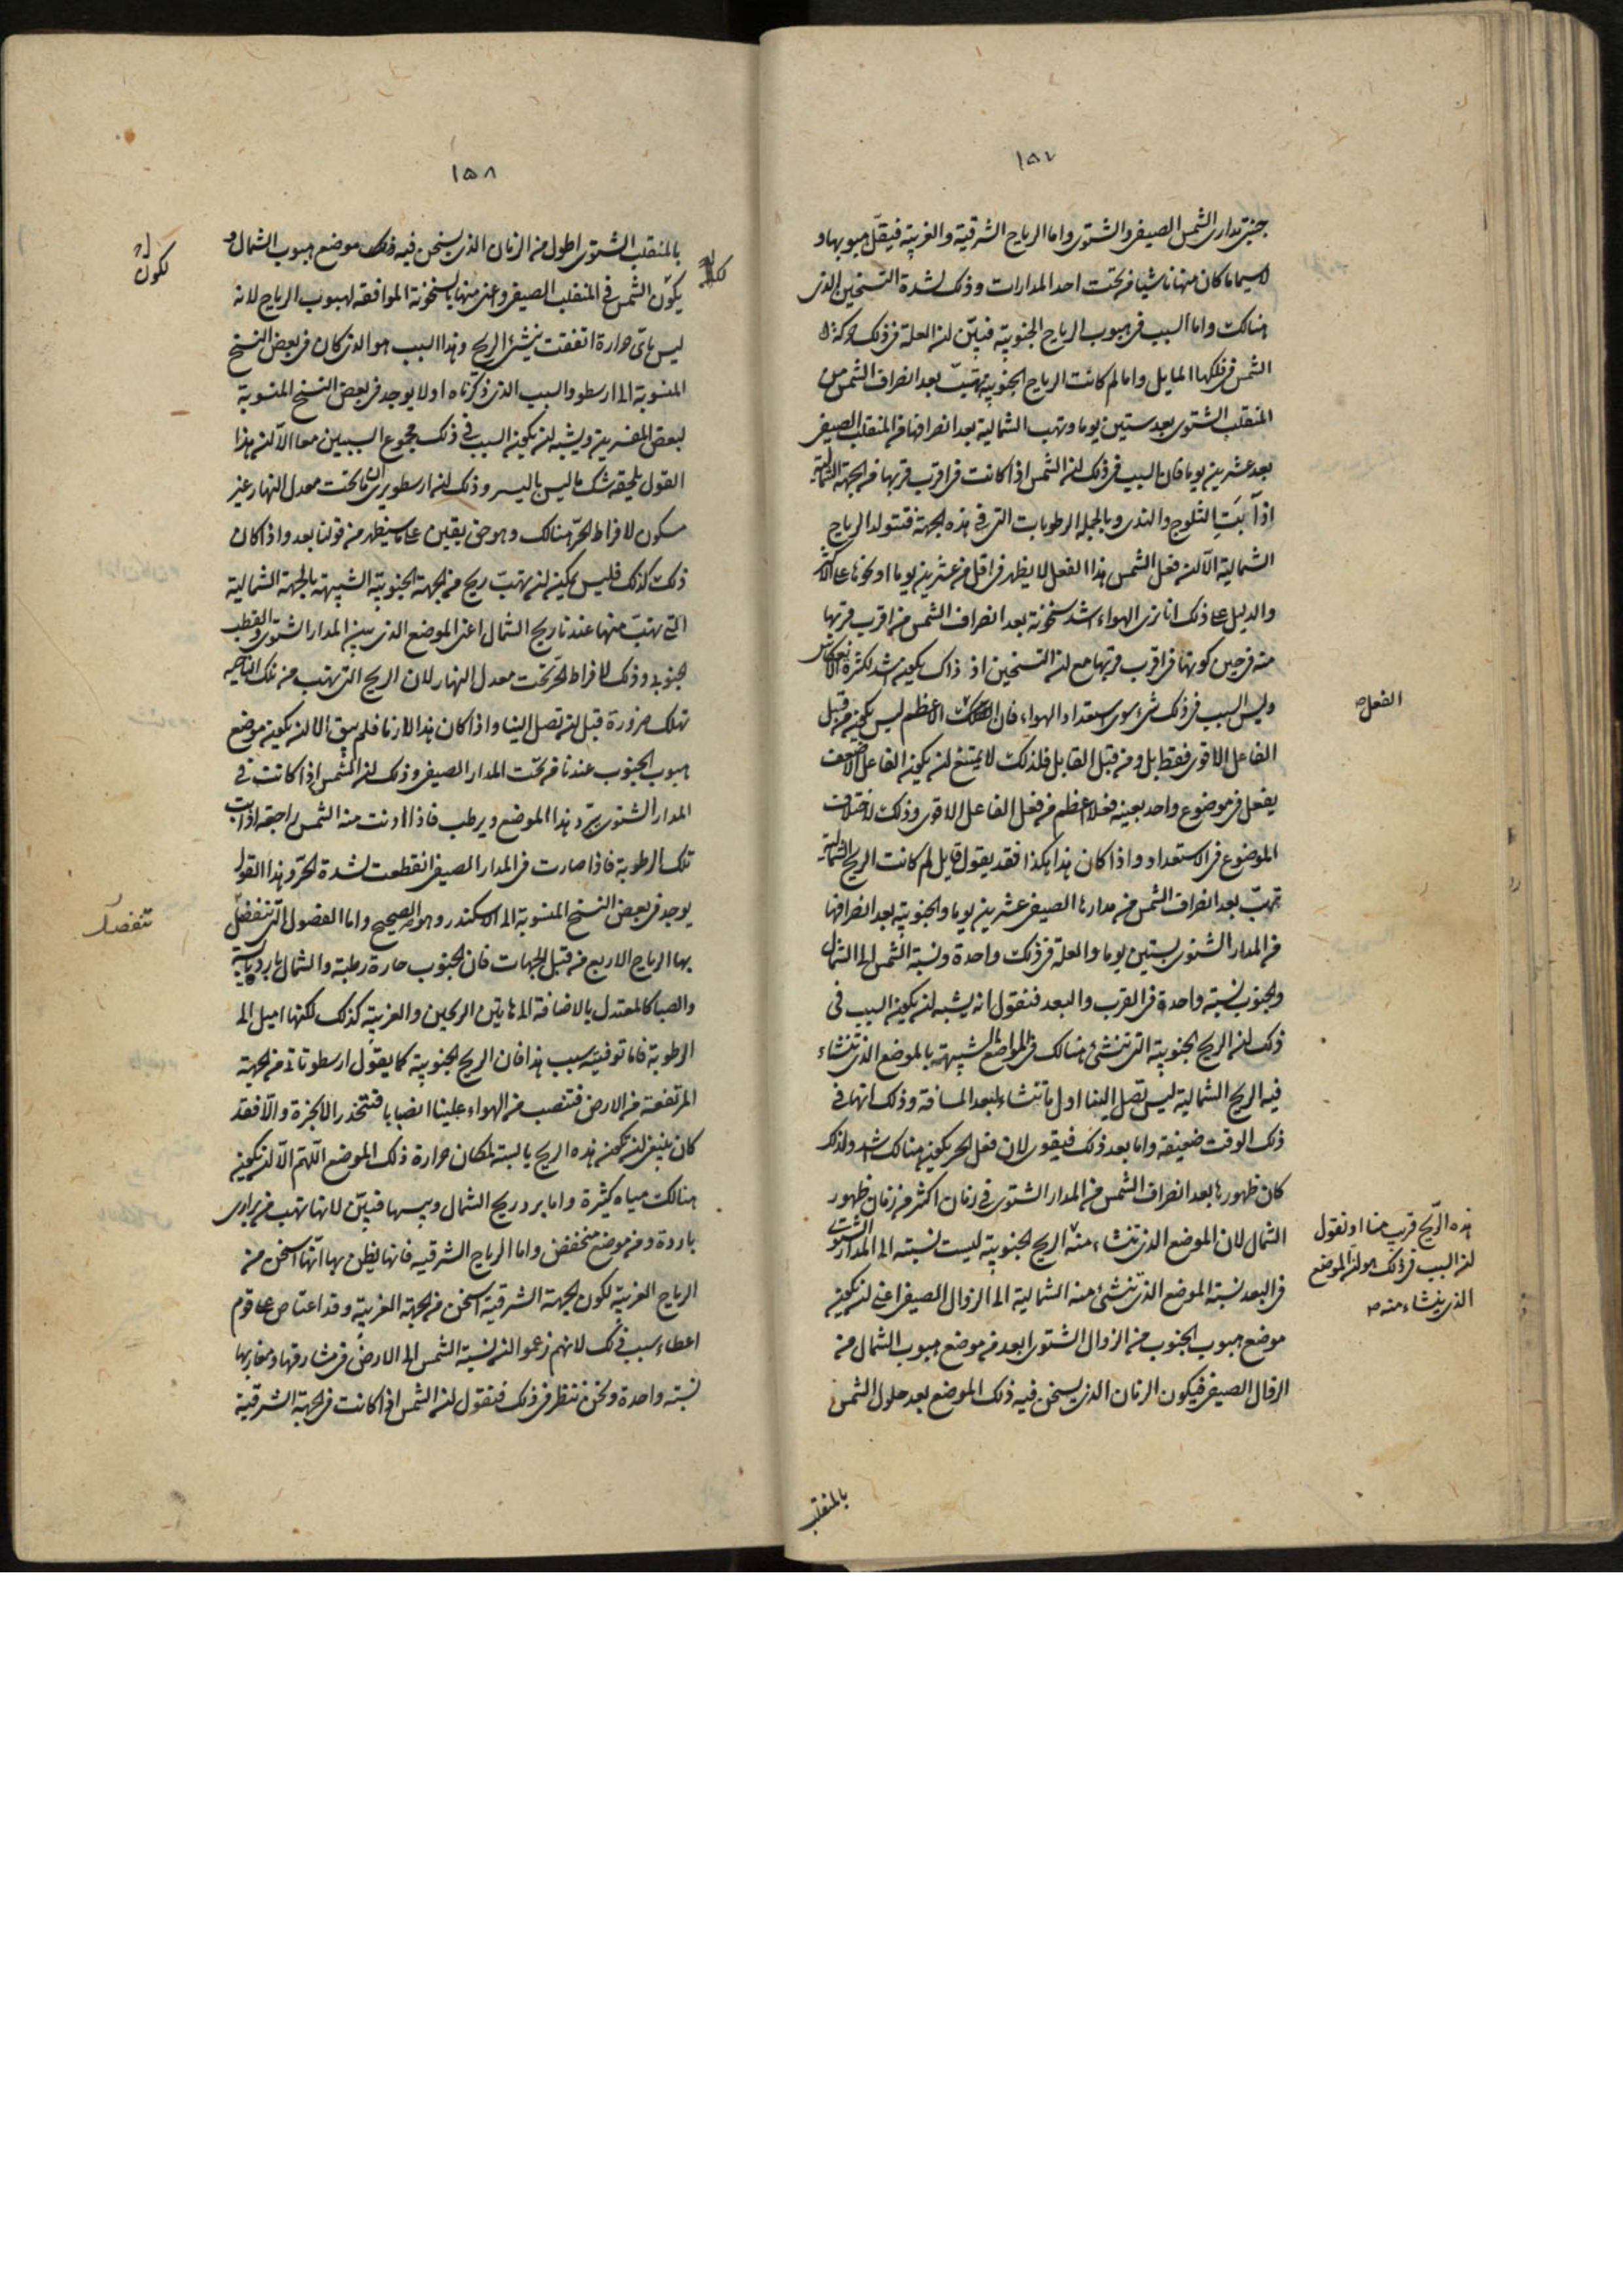 ١٥٧
جنبتي مدارى الشمس الصيفى والشتوى واما الرياح الشرقية والغربية فيقل هبوبها و
لاسيما ما كان منها ناشيا من تحت احد المدارات وذلك لشدة التسخين الذى
هنالك واما السبب فى هبوب الرياح الجنوبية فبين ان العلة فى ذلك حركة
الشمس فى فلكها المايل واما لم كانت الرياح الجنوبية تهب بعد انصراف الشمس من
المنقلب الشتوى بعد ستين يوما وتهب الشمالية بعد انصرافها من المنقلب الصيفى
بعد عشرين يوما فان السبب فى ذلك ان الشمس اذا كانت فى اقرب قربها من الجهة الشمالية
اذابت الثلوج والندى وبالجملة الرطوبات التى فى هذه الجهة فتتولد الرياح
الشمالية الا ان فعل الشمس هذا الفعل لا يظهر فى اقل من عشرين يوما او نحوها على الاكثر
والدليل على ذلك انا نرى الهواء اشد سخونة بعد انصراف الشمس من اقرب قربها
منه فى حين كونها فى اقرب قربها مع ان التسخين اذ ذاك يكون اشد لكثرة الانعكاس
وليس السبب فى ذلك شىء سوى استعداد الهواء فان الاعظم ليس يكون من قبل
الفعل ص
الفاعل الاقوى فقط بل ومن قبل القابل فلذلك لا يمتنع ان يكون الفاعل الاضعف
يفعل فى موضوع واحد بعينه فعلا اعظم من فعل الفاعل الاقوى وذلك لاختلاف
الموضوع فى الاستعداد واذا كان هذا هكذا فقد يقول قايل لم كانت الريح الشمالية
تهب بعد انصراف الشمس من مدارها الصيفى عشرين يوما والجنوبية بعد انصرافها
من المدار الشتوى بستين يوما والعلة فى ذلك واحدة ونسبة الشمس الى الشمال
والجنوب نسبة واحدة فى القرب والبعد فنقول انه يشبه ان يكون السبب فى
ذلك ان الريح الجنوبية التى تنشئ هنالك فى المواضع الشبيهة بالموضع الذى تنشاء
فيه الريح الشمالية ليس تصل الينا اول ما تنشاء لبعد المسافة وذلك انها فى
ذلك الوقت ضعيفة واما بعد ذلك فيقوى لان فعل الحر يكون هنالك اشد ولذلك
كان ظهورها بعد انصراف الشمس من المدار الشتوى فى زمان اكثر من زمان ظهور
الشمال لان الموضع الذى تنشاء منه الريح الجنوبية ليست نسبته الى المدار الشتوى
هذه الريح قريب منا او نقول
ان السبب فى ذلك هو ان الموضع
الذى ينشاء منه ص
فى البعد نسبة الموضع الذى تنشئ منه الشمالية الى الزوال الصيفى اعنى ان يكون
موضع هبوب الجنوب من الزوال الشتوى ابعد من موضع هبوب الشمال من
الزوال الصيفى فيكون الزمان الذى يسخن فيه ذلك الموضع بعد حلول الشمس
بالمنقلب
١٥٨
بالمنقلب الشتوى اطول من الزمان الذى يسخن فيه موضع هبوب الشمال و
لكون
يكون الشمس فى المنقلب الصيفى واعنى منها بالسخونة الموافقة لهبوب الرياح لانه
ليس باى حرارة اتفقت ينشئ الريح وهذا السبب هو الذى كان فى بعض النسخ
المنسوبة الى ارسطو والسبب الذى ذكرناه اولا يوجد فى بعض النسخ المنسوبة
لبعض المفسرين ويشبه ان يكون السبب فى ذلك مجموع السببين معا الا ان هذا
القول يلحقه شك ما ليس باليسير وذلك ان ارسطو يرى ان ما تحت معدل النهار غير
مسكون لافراط الحر هنالك وهو حق يقين على ما سيظهر من قولنا بعد واذا كان
ذلك كذلك فليس يمكن ان تهب ريح من الجهة الجنوبية الشبيهة بالجهة الشمالية
التى تهب منها عندنا ريح الشمال اعنى الموضع الذى بين المدار الشتوى والقطب
الجنوبى وذلك لافراط الحر تحت معدل النهار لان الريح التى تهب من تلك الناحية
تهلك ضرورة قبل ان تصل الينا واذا كان هذا لازما فلم يبق الا ان يكون موضع
هبوب الجنوب عندنا من تحت المدار الصيفى وذلك ان الشمس اذا كانت فى
المدار الشتوى يبرد هذا الموضع ويرطب فاذا دنت منه الشمس راجعة اذابت
تلك الرطوبة فاذا صارت فى المدار الصيفى انقطعت لشدة الحر وهذا القول
يوجد فى بعض النسخ المنسوبة الى الاسكندر وهو الصحيح واما الفصول التى تنفصل
تنفصل
بها الرياح الاربع من قبل الجهات فان الجنوب حارة رطبة والشمال باردة يابسة
والصبا كالمعتدل بالاضافة الى هاتين الريحين والغربية كذلك لكنها اميل الى
الرطوبة فاما توفية سبب هذا فان الريح الجنوبية كما يقول ارسطو تاتى من الجهة
المرتفعة من الارض فتنصب من الهواء علينا انصبابا فتنحدر الابخرة والا فقد
كان ينبغى ان تكون هذه الريح يابسة لمكان حرارة ذلك الموضع اللهم الا ان تكون
هنالك مياه كثيرة واما برد ريح الشمال ويبسها فبين لانها تهب من برارى
باردة ومن موضع منخفض واما الرياح الشرقية فانها يظن بها انها اسخن من
الرياح الغربية لكون الجهة الشرقية اسخن من الجهة الغربية وقد اعتاص على قوم
اعطاء سبب ذلك لانهم زعموا ان نسبة الشمس الى الارض فى مشارقها ومغاربها
نسبة واحدة ونحن ننظر فى ذلك فنقول ان الشمس اذا كانت فى الجهة الشرقية